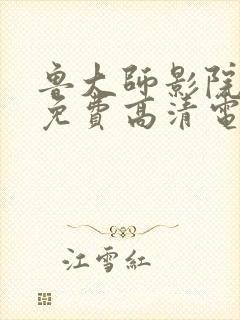 魯大師影院
免費高清電
江雪紅